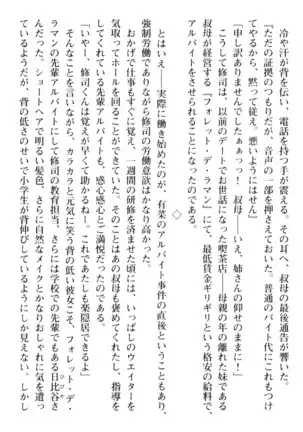 冷や汗が背を伝い、電話を持つ手が震える。その耳へ、叔母の最後通告が響いた。
『ただの証拠のつもりだが、音声の一部を押さえておいた。普通のバイト代にこれもつけ
てやるから、黙って従え。悪いようにはせん』
「申し訳ありませんでしたぁぁっ！　叔母――いえ、姉さんの仰せのままに！」
こうして修司は、以前のデートでお世話になった喫茶店――母親の年の離れた妹である
叔母が経営する「フォレット・デ・ラマン」にて、最低賃金ギリギリという格安の給料で、
アルバイトをさせられることになったのである。
◇
とはいえ、実際に働き始めたのが、有菜のアルバイト事件の直後ということもあり、
強制労働でありながら修司の労働意欲はかなり高かった。
おかげで仕事もすぐに覚え、一週間の研修を済ませた頃には、いっぱしのウエイターを
気取ってホールを回ることができていた。そのことはあの叔母も褒めてくれたし、指導を
してくれている先輩アルバイトも、感心感心とご満悦だったのである。
「いやー、修司くんは覚えが早くて助かるね！　これであたしも楽隠居できるよ」
そんなことを言いながら、カラカラと元気に笑う背の低い彼女こそ、フォレット・デ・
ラマンの先輩アルバイトにして修司の教育担当、さらには学校での先輩でもある日比谷さ
んだった。ショートヘアで明るい髪色、さらに自然なメイクとかなりおしゃれに気を遣っ
ているようだが、背の低さのせいで小学生が背伸びしているようにしか見えない。しかし